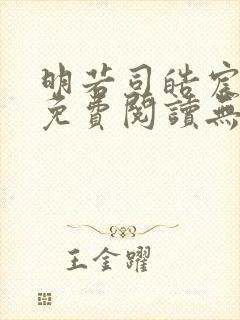 明若司皓宸
免費閱讀無
王金躍